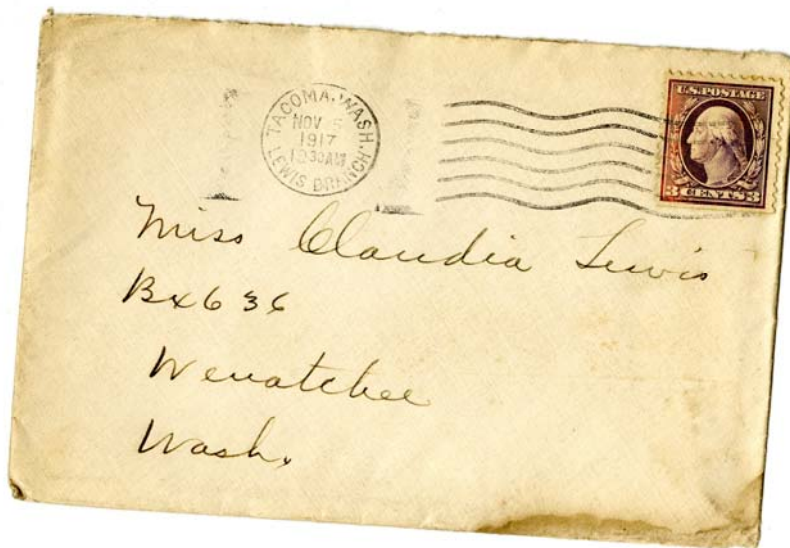 TACOMA, WASH.
NOV 5
1917
30AM
LEWIS BRANCH
U.S. POSTAGE
3 CENTS 3
Miss Claudia Lewis
Bx 636
Wenatchee
Wash.